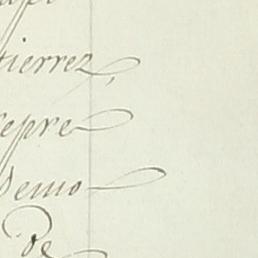 tierrez
repre
demo
de